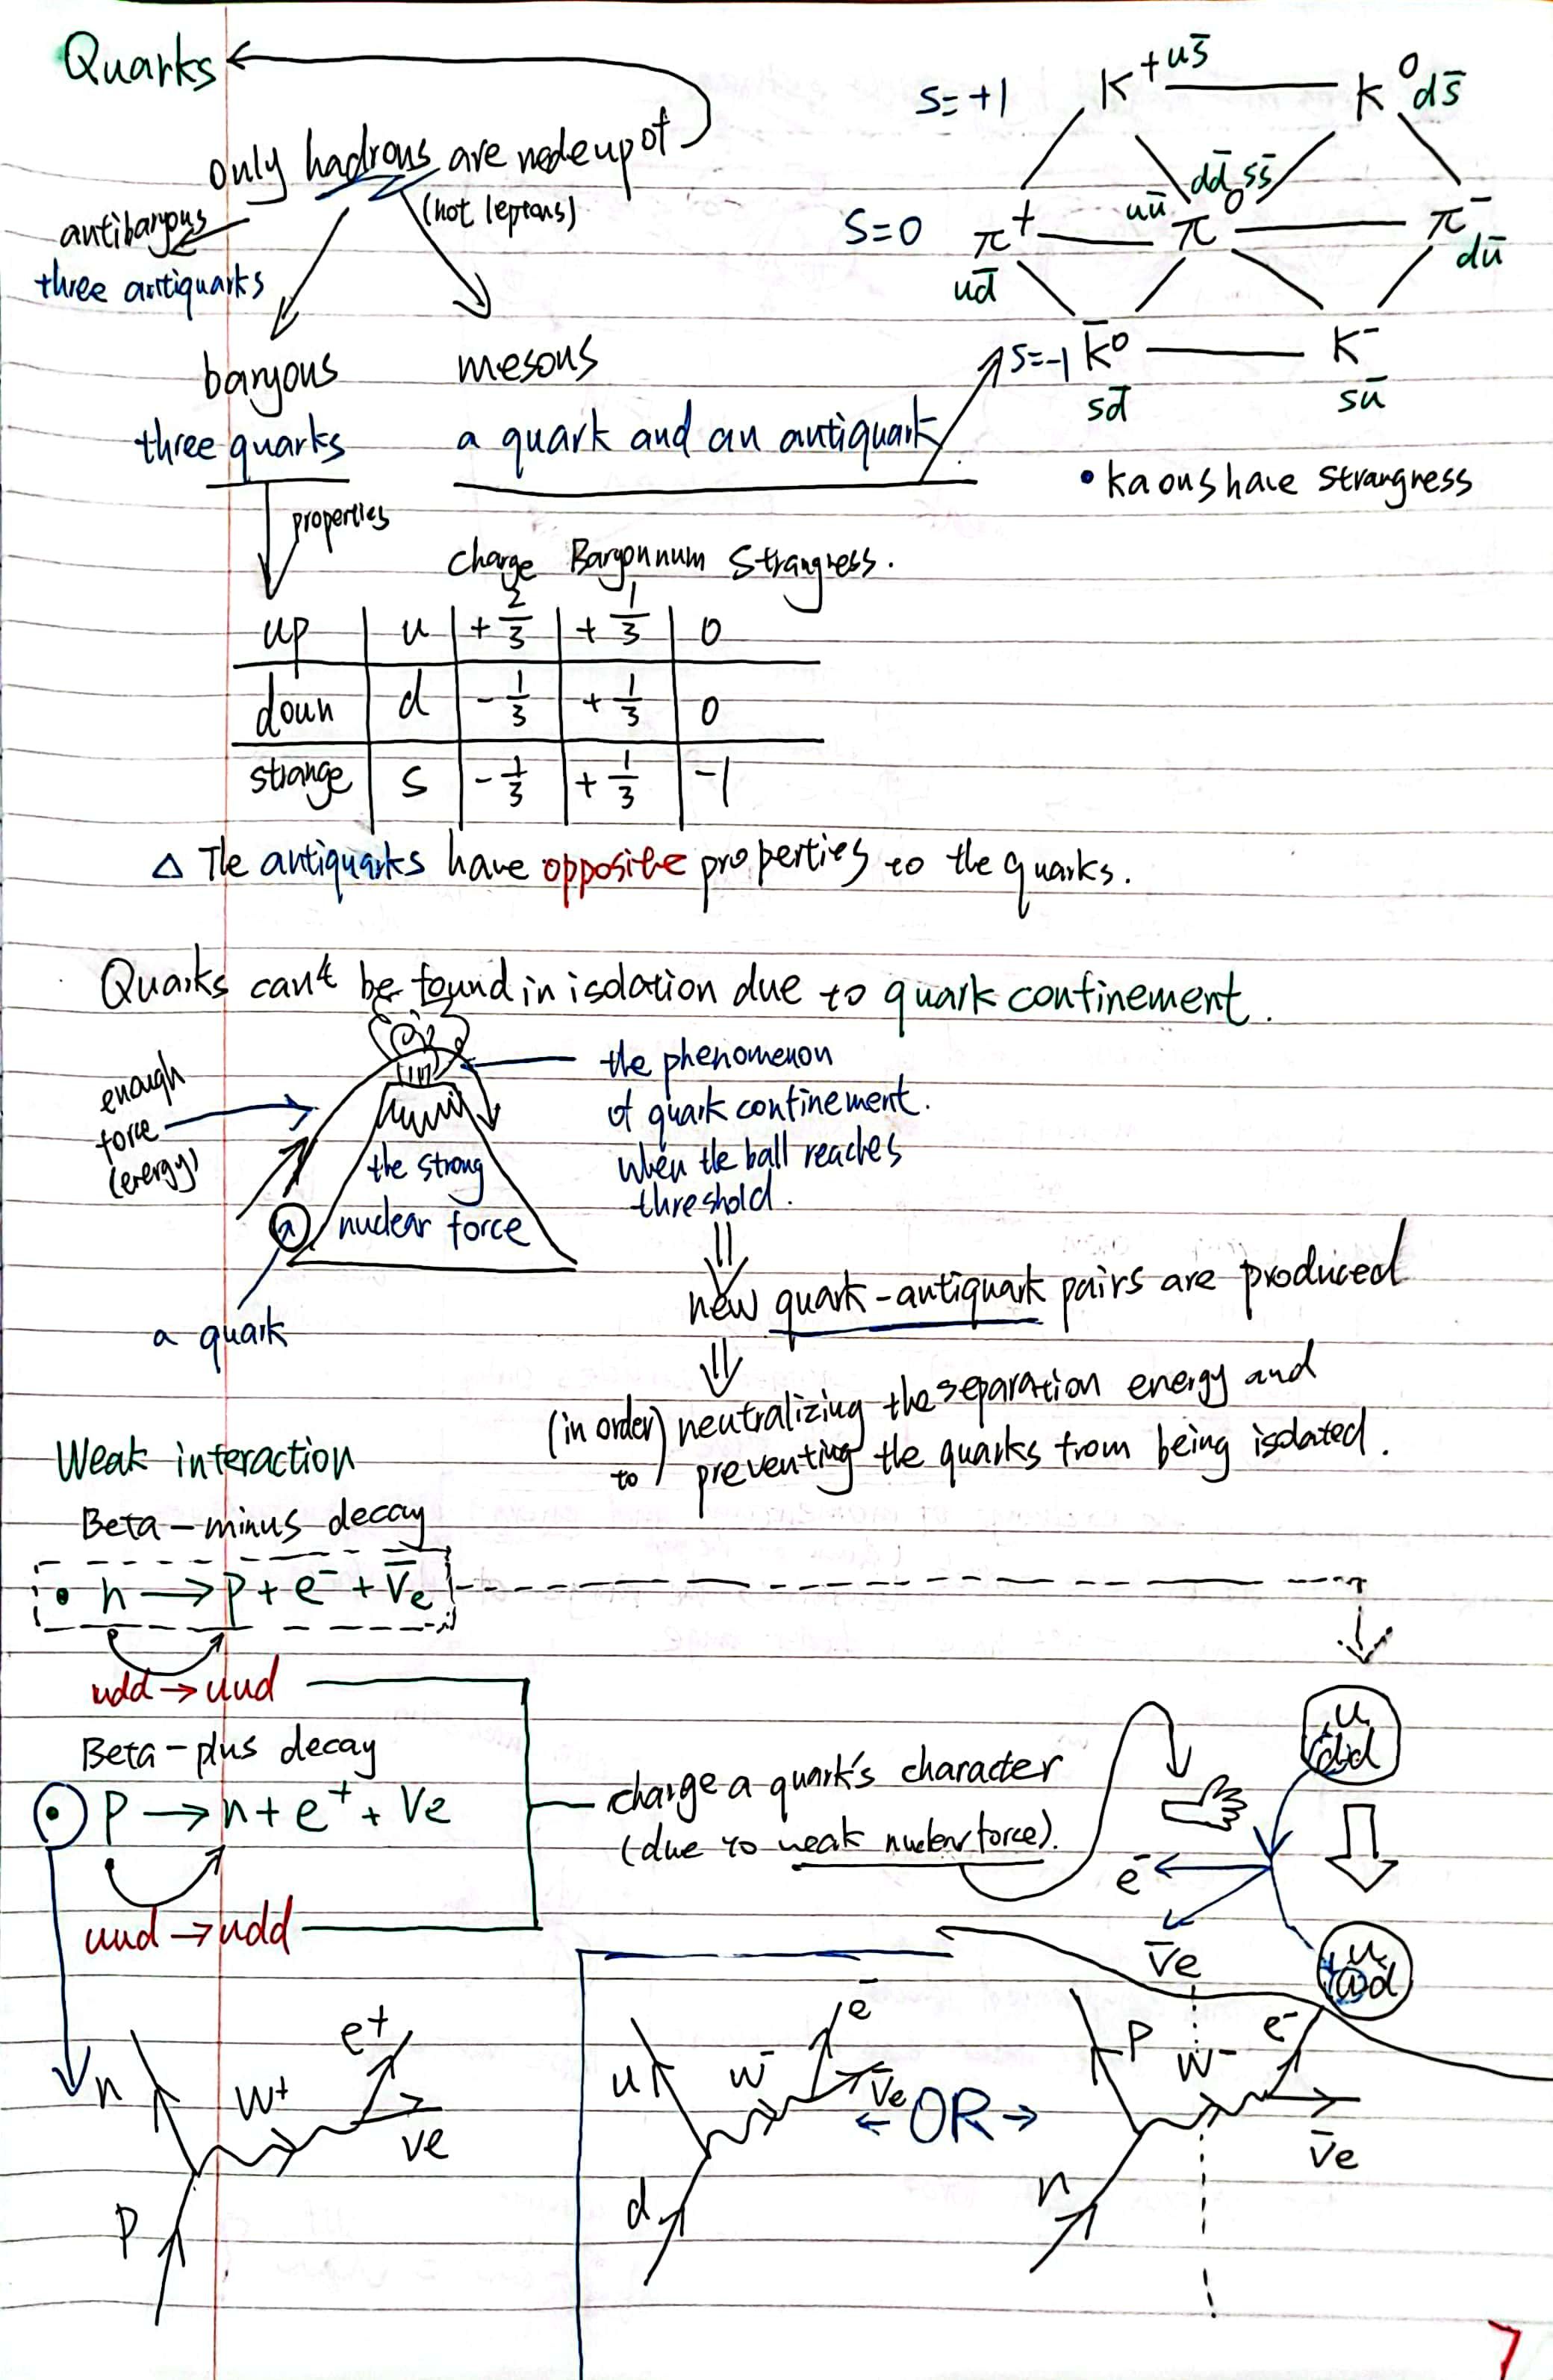 Quarks
only hadrons are made up of
(not leptons)
antibaryons
three antiquarks
baryons
three quarks
mesons
a quark and an antiquark
properties
S=+1 K⁺ us̄ K⁰ ds̄
S=0 π⁺ ud̄ uū dd̄ ss̄ π⁰ π⁻ dū
S=-1 K̄⁰ sd̄ K⁻ sū
• kaons have strangness
charge Baryon num Strangness.
up u +2/3 +1/3 0
down d -1/3 +1/3 0
strange s -1/3 +1/3 -1
△ The antiquarks have opposite properties to the quarks.
Quarks can't be found in isolation due to quark confinement.
enough
force
(energy)
the strong
nuclear force
a quark
the phenomenon
of quark confinement.
when the ball reaches
threshold.
⇓
new quark-antiquark pairs are produced
⇓
(in order to) neutralizing the separation energy and
preventing the quarks from being isolated.
Weak interaction
Beta-minus decay
• n → p + e⁻ + V̄e
udd → uud
Beta-plus decay
• p → n + e⁺ + Ve
uud → udd
charge a quark's character
(due to weak nuclear force).
u
dd
e⁻
V̄e
u
ud
n W⁺ e⁺ Ve p
u W⁻ e⁻ V̄e d
← OR →
p W⁻ e⁻ V̄e n
7